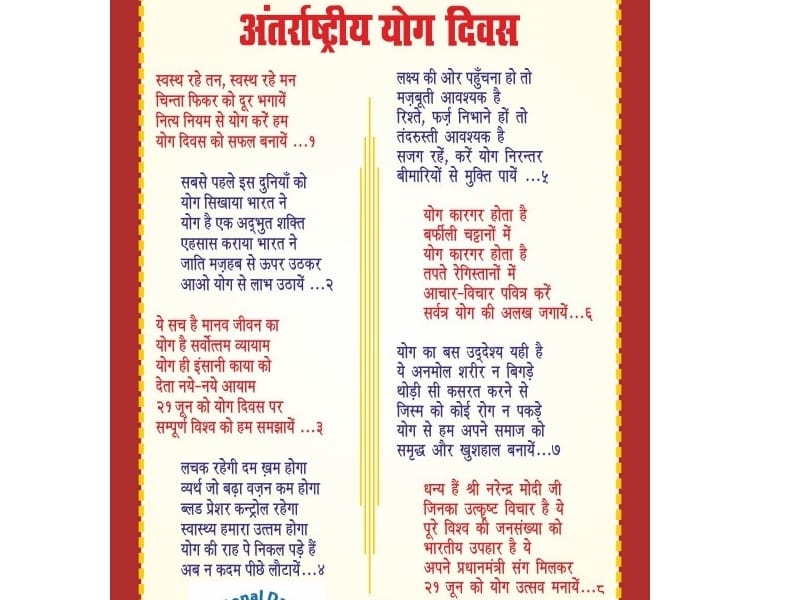 अंतर्राष्ट्रीय योग दिवस
स्वस्थ रहे तन, स्वस्थ रहे मन
चिन्ता फिकर को दूर भगायें
नित्य नियम से योग करें हम
योग दिवस को सफल बनायें ...१
सबसे पहले इस दुनियाँ को
योग सिखाया भारत ने
योग है एक अद्भुत शक्ति
एहसास कराया भारत ने
जाति मज़हब से ऊपर उठकर
आओ योग से लाभ उठायें ...२
ये सच है मानव जीवन का
योग है सर्वोत्तम व्यायाम
योग ही इंसानी काया को
देता नये-नये आयाम
२१ जून को योग दिवस पर
सम्पूर्ण विश्व को हम समझायें ...३
लचक रहेगी दम ख़म होगा
व्यर्थ जो बढ़ा वज़न कम होगा
ब्लड प्रेशर कन्ट्रोल रहेगा
स्वास्थ्य हमारा उत्तम होगा
योग की राह पे निकल पड़े हैं
अब न कदम पीछे लौटायें...४
लक्ष्य की ओर पहुँचना हो तो
मज़बूती आवश्यक है
रिश्ते, फर्ज़ निभाने हों तो
तंदरुस्ती आवश्यक है
सजग रहें, करें योग निरन्तर
बीमारियों से मुक्ति पायें ...५
योग कारगर होता है
बर्फीली चट्टानों में
योग कारगर होता है
तपते रेगिस्तानों में
आचार-विचार पवित्र करें
सर्वत्र योग की अलख जगायें...६
योग का बस उद्देश्य यही है
ये अनमोल शरीर न बिगड़े
थोड़ी सी कसरत करने से
जिस्म को कोई रोग न पकड़े
योग से हम अपने समाज को
समृद्ध और खुशहाल बनायें...७
धन्य हैं श्री नरेन्द्र मोदी जी
जिनका उत्कृष्ट विचार है ये
पूरे विश्व की जनसंख्या को
भारतीय उपहार है ये
अपने प्रधानमंत्री संग मिलकर
२१ जून को योग उत्सव मनायें...८